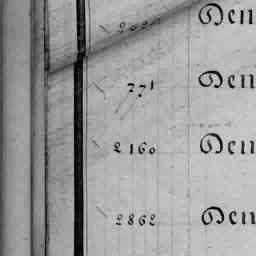 Den
771 Den
2160 Den
2862 Den